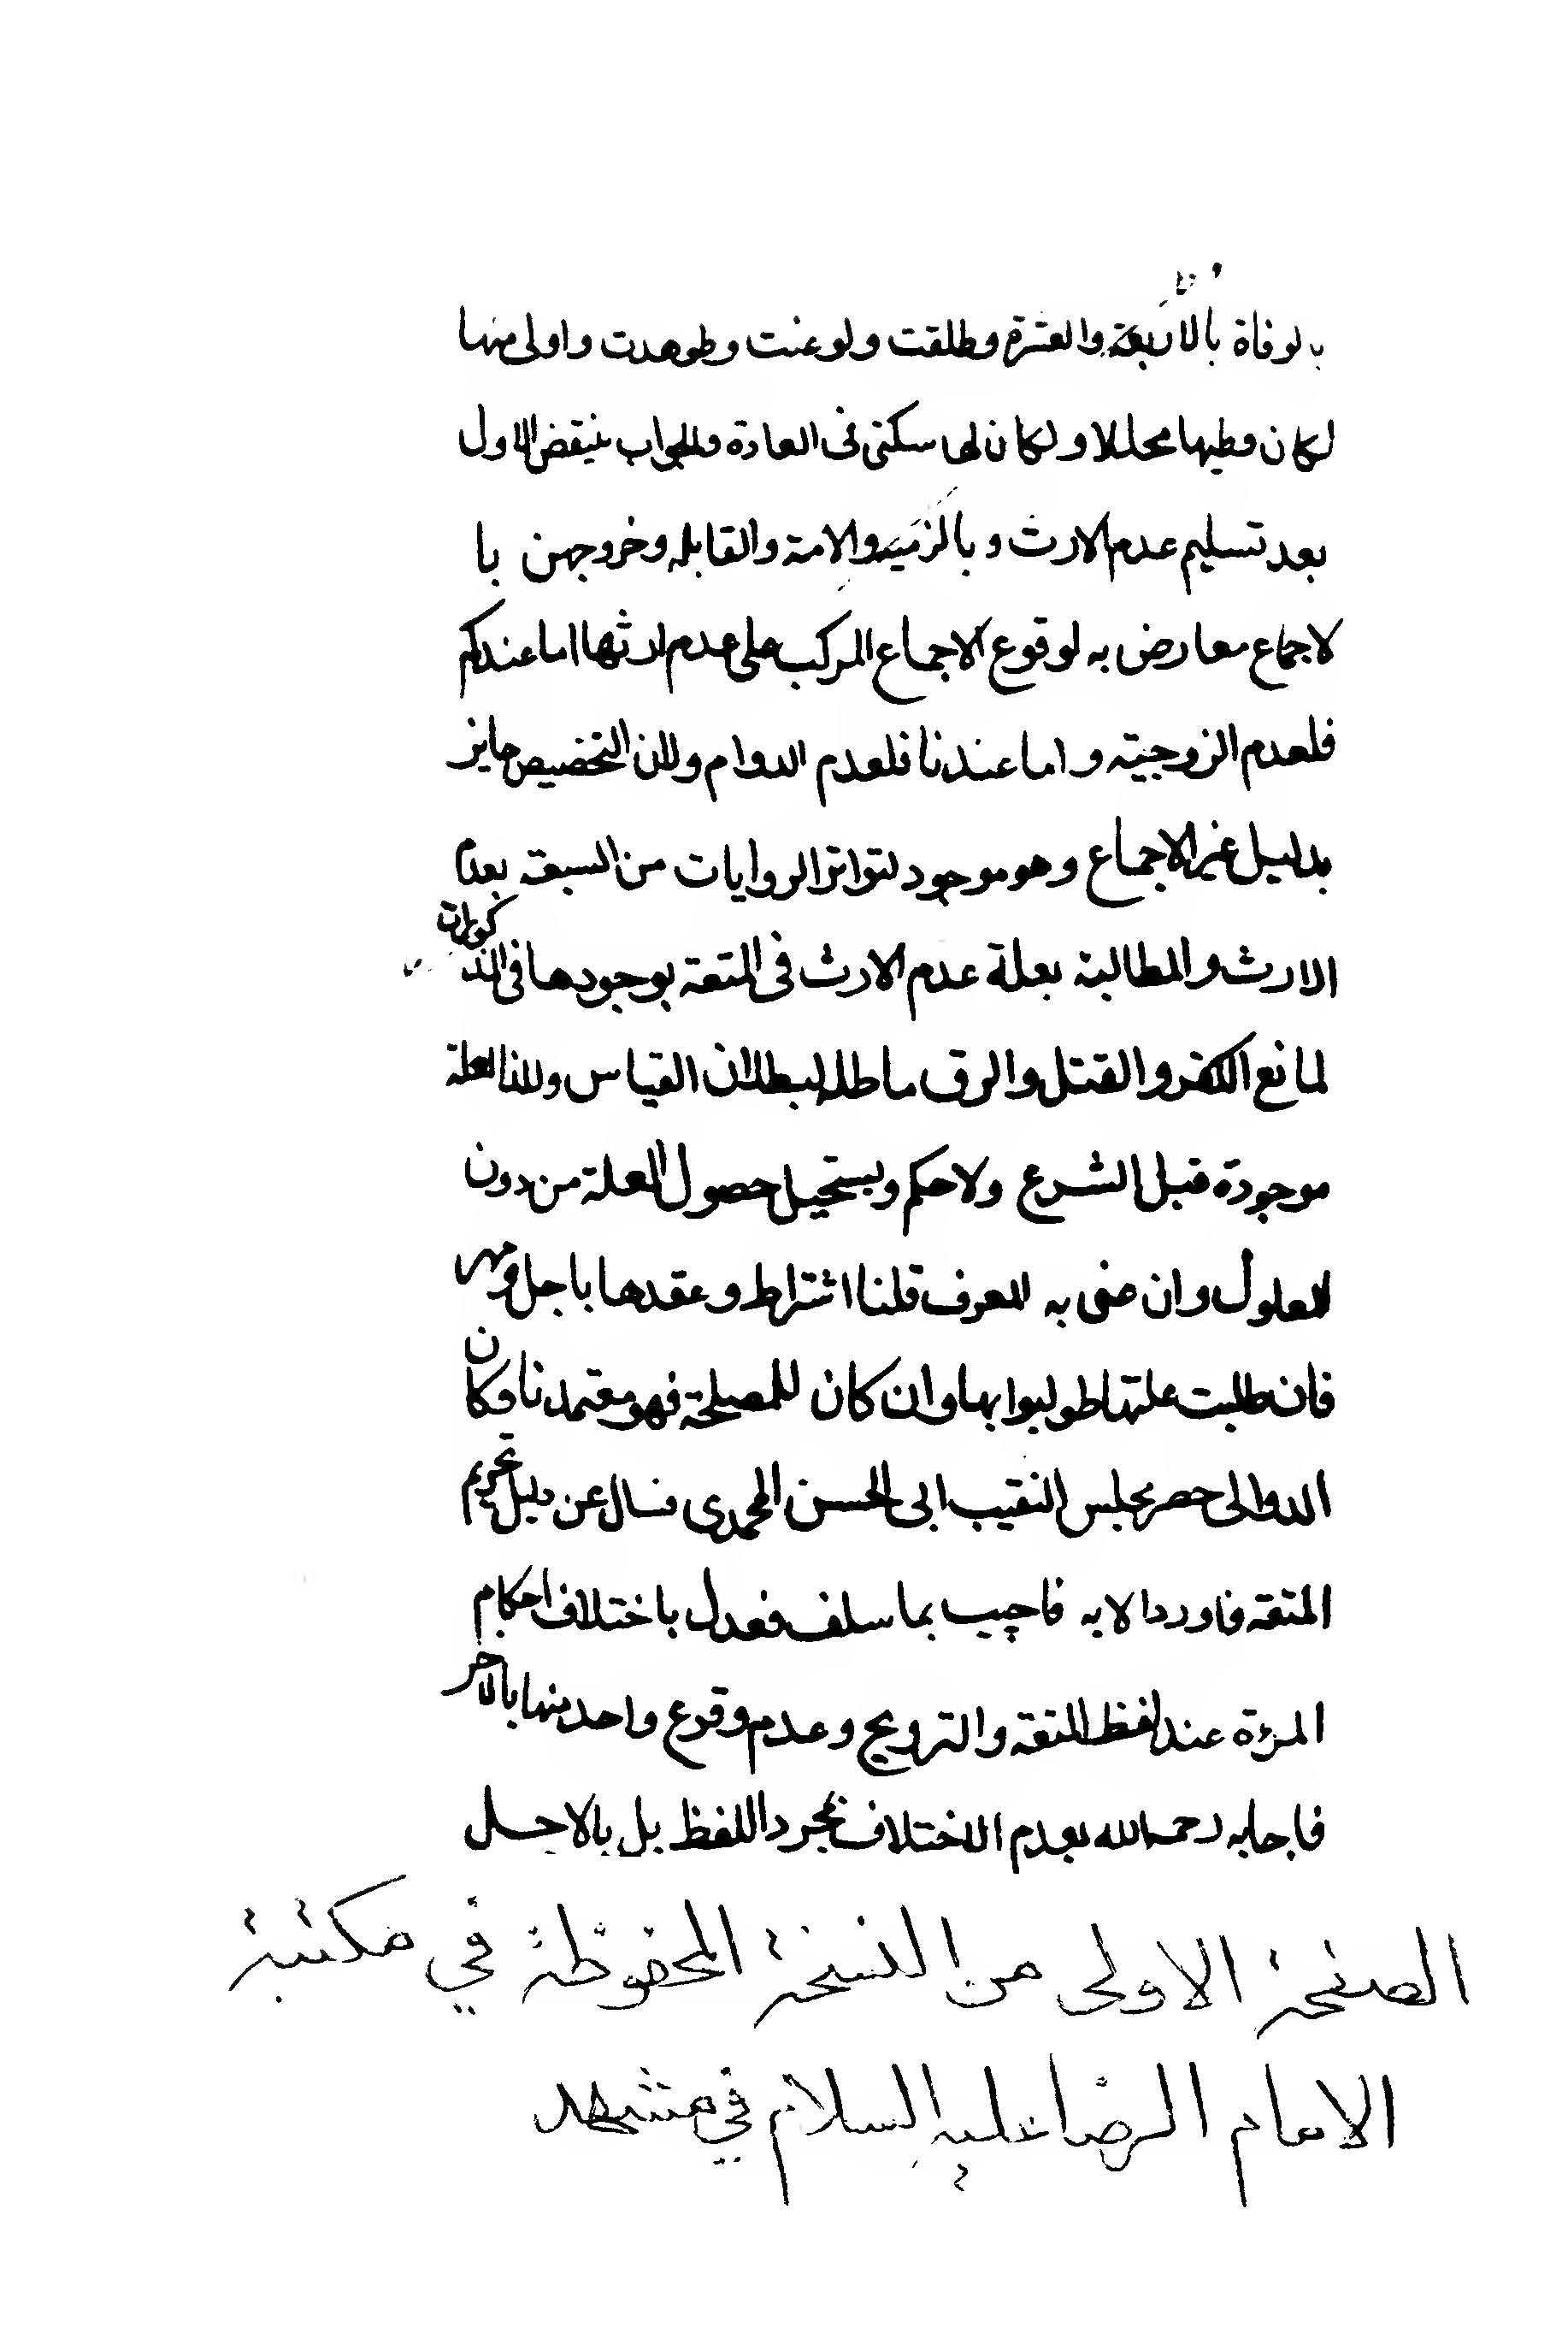 بالوفاة بالاربعة والعشرة وطلقت ولوعنت وظوهرت واولى منها
لكان وطيها محللا ولكان لها سكنى فى العادة والجواب ينيقض الاول
بعد تسليم عدم الارث و بالذمية والامة والقابله وخروجهن با
لاجماع معارض به لوقوع الاجماع المركب على عدم ارثها اما عندكم
فلعدم الزوجيته واما عندنا فلعدم الدوام ولان التخصيص جايز
بدليل غير الاجماع وهو موجود لتواتر الروايات من السبعة بعدم
الارث والمطالبة بعلة عدم الارث فى المتعة بوجودها فى المذكورات
لمانع الكفر والقتل والرق باطله لبطلان القياس ولانا العلة
موجودة قبل الشرع ولا حكم ويستحيل حصول العلة من دون
المعلول وان عنى به المعرف قلنا اشتراط وعقدها باجل ومهر
فان طلبت علتها طولبوا بها وان كان للمصلحة فهو معتمدنا وكان
الدوالى حضر مجلس النقيب ابى الحسن المحمدى فسال عن دليل تحريم
المتعة فاورد الاية فاجيب بما سلف فعدل باختلاف احكام
المرءة عند لفظ المتعة والتزويج وعدم وقوع واحد منها بالاخر
فاجابه رحمه الله بعدم الاختلاف بمجرد اللفظ بل بالاجل
الصفحة الاولى من النسخة المحفوظة في مكتبة
الامام الرضا عليه السلام في مشهد